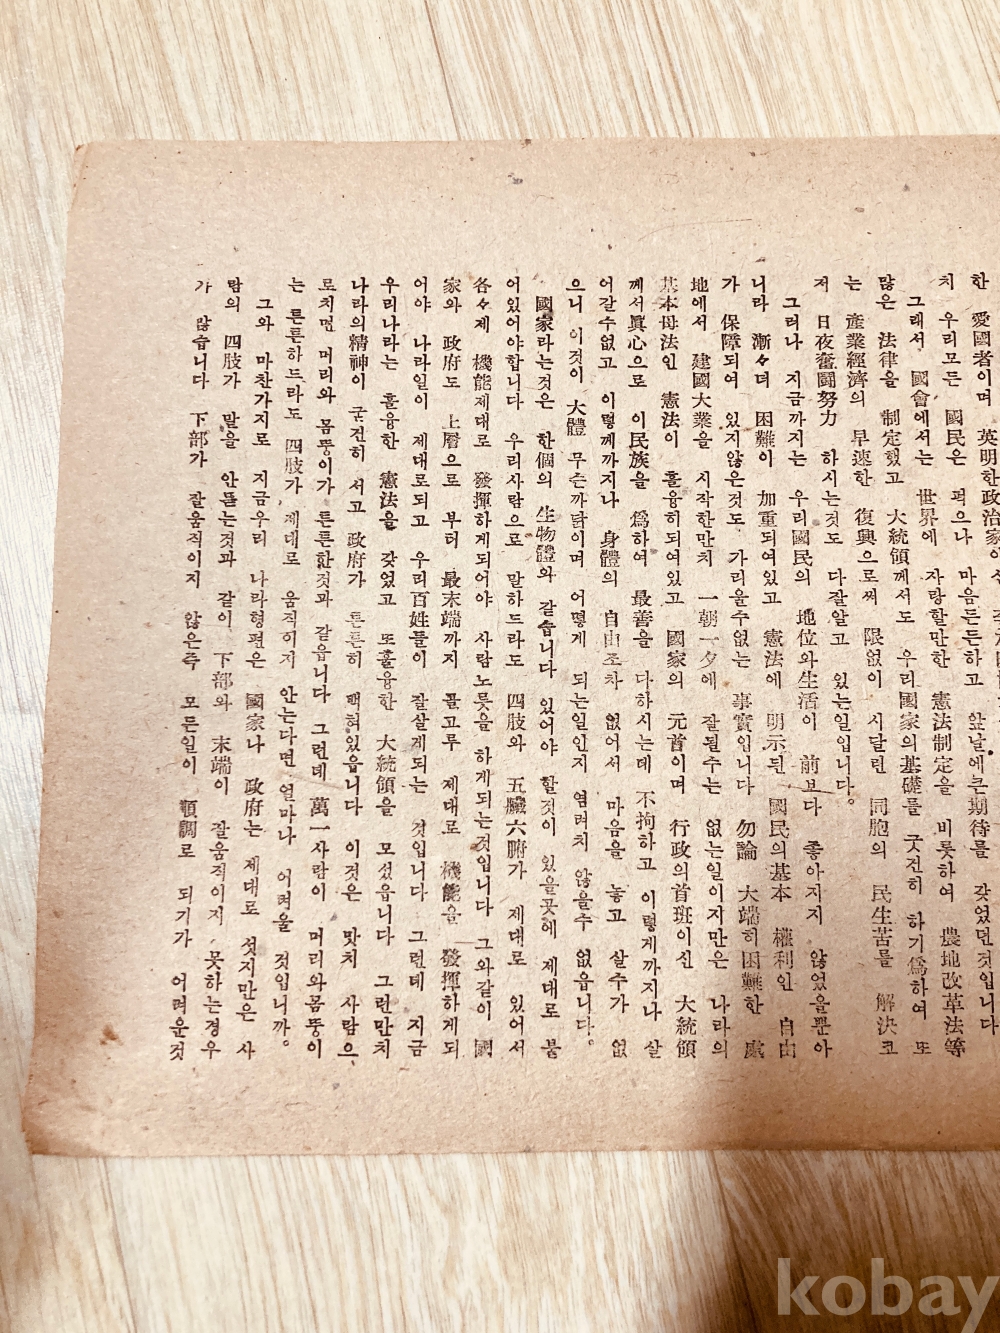 한 愛國者이며 英明한政治家이신
치 우리모든 國民은 퍽으나 마음든든하고 앞날에큰期待를 갖였던것입니다
그래서 國會에서는 世界에 자랑할만한 憲法制定을 비롯하여 農地改革法等
많은 法律을 制定했고 大統領께서도 우리國家의基礎를 굿건히 하기爲하여 또
는 産業經濟의 早速한 復興으로써 限없이 시달린 同胞의 民生苦를 解決코
저 日夜奮鬪努力 하시는것도 다잘알고 있는일입니다。
그러나 지금까지는 우리國民의 地位와生活이 前보다 좋아지지 않었을뿐아
니라 漸々더 困難이 加重되여있고 憲法에 明示된 國民의基本 權利인 自由
가 保障되여 있지않은것도 가리울수없는 事實입니다 勿論 大端히困難한 處
地에서 建國大業을 시작한만치 一朝一夕에 잘될수는 없는일이지만은 나라의
基本母法인 憲法이 훌융히되여있고 國家의 元首이며 行政의首班이신 大統領
께서眞心으로 이民族을 爲하여 最善을 다하시는데 不拘하고 이렇게까지나 살
어갈수없고 이렇게까지나 身體의 自由조차 없어서 마음을 놓고 살수가 없
으니 이것이 大體 무슨까닭이며 어떻게 되는일인지 염려치 않을수 없읍니다。
國家라는것은 한個의 生物體와 같습니다 있어야 할것이 있을곳에 제대로 붙
어있어야합니다 우리사람으로 말하드라도 四肢와 五臟六腑가 제대로 있어서
各々제 機能제대로 發揮하게되어야 사람노릇을 하게되는것입니다 그와같이 國
家와 政府도 上層으로 부터 最末端까지 골고루 제대로 機能을 發揮하게되
어야 나라일이 제대로되고 우리百姓들이 잘살게되는 것입니다 그런데 지금
우리나라는 훌융한 憲法을 갖었고 또훌융한 大統領을 모섰읍니다 그런만치
나라의精神이 굳건히 서고 政府가 튼튼히 백혀있읍니다 이것은 맛치 사람으
로치면 머리와 몸뚱이가 튼튼한것과 같읍니다 그런데 萬一사람이 머리와몸뚱이
는 튼튼하드라도 四肢가 제대로 움직이지 안는다면 얼마나 어려울 것입니까。
그와 마찬가지로 지금우리 나라형편은 國家나 政府는 제대로 섯지만은 사
람의 四肢가 말을 안듣는것과 같이 下部와 末端이 잘움직이지 못하는경우
가 많습니다 下部가 잘움직이지 않은즉 모든일이 順調로 되기가 어려운것
kobay